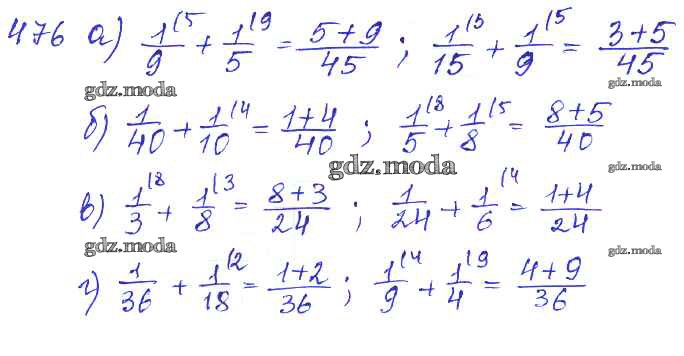 476 а) 1/9^(5 + 1/5^(9 = 5+9/45 ; 1/15^(3 + 1/9^(5 = 3+5/45
gdz.moda gdz.moda
б) 1/40 + 1/10^(4 = 1+4/40 ; 1/5^(8 + 1/8^(5 = 8+5/40
gdz.moda gdz.moda
в) 1/3^(8 + 1/8^(3 = 8+3/24 ; 1/24 + 1/6^(4 = 1+4/24
gdz.moda gdz.moda
г) 1/36 + 1/18^(2 = 1+2/36 ; 1/9^(4 + 1/4^(9 = 4+9/36